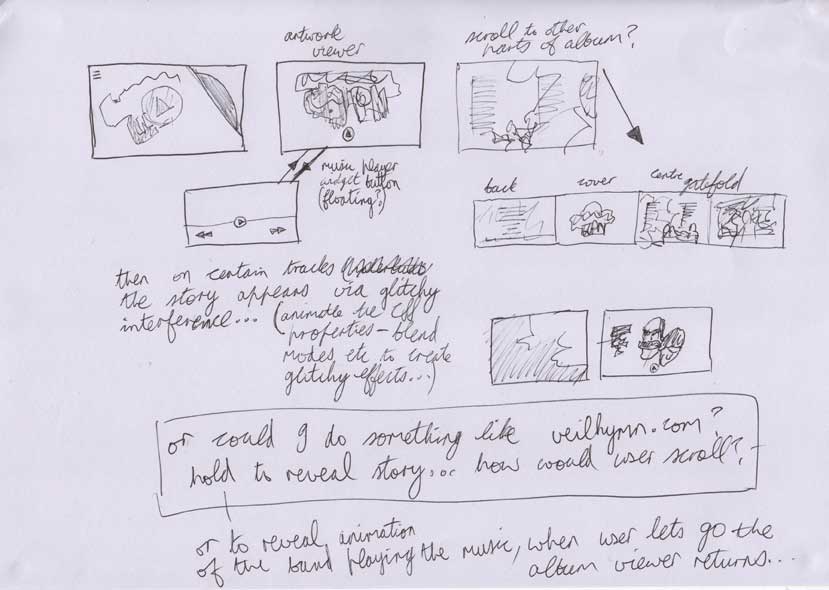 artwork
viewer
scroll to other
parts of album?
music player
widget button
(floating?)
back
cover
centre gatefold
then on certain tracks
the story appears via glitchy
interference... (animate the CSS
properties - blend
modes etc to create
glitchy effects...)
or could I do something like veilhymn.com?
hold to reveal story... or how would user scroll?
or to reveal animation
of the band playing the music, when user lets go the
album viewer returns...